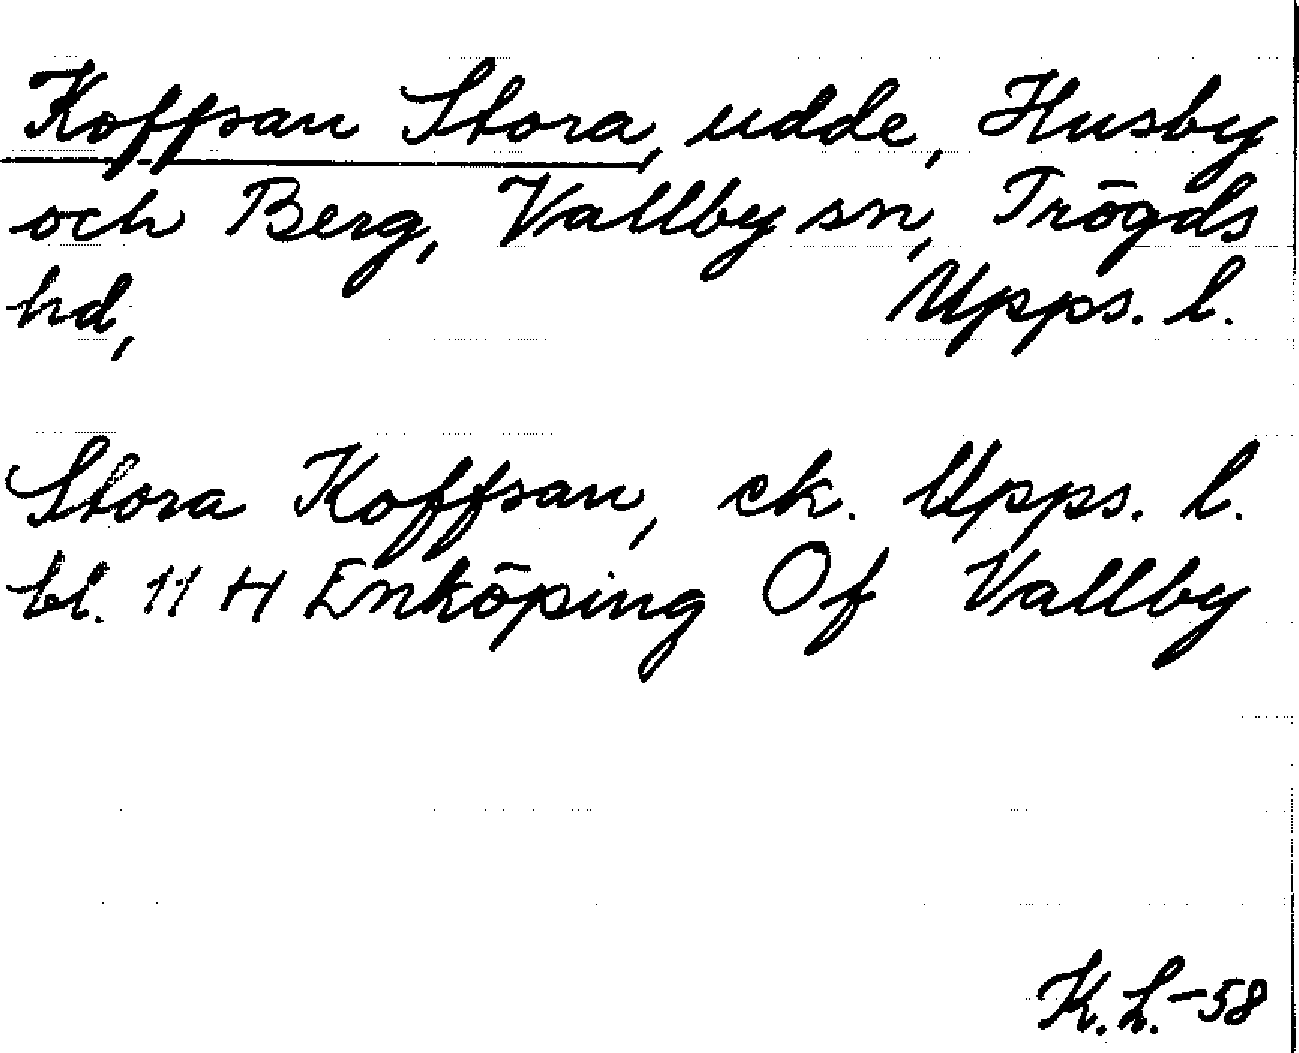 Koffsan Stora, udde, Husby
och Berg, Vallby sn, Trögds
hd, Upps. l.
Stora Koffsan, ek. Upps. l.
bl. 11 H Enköping Of Vallby
K.L.-58